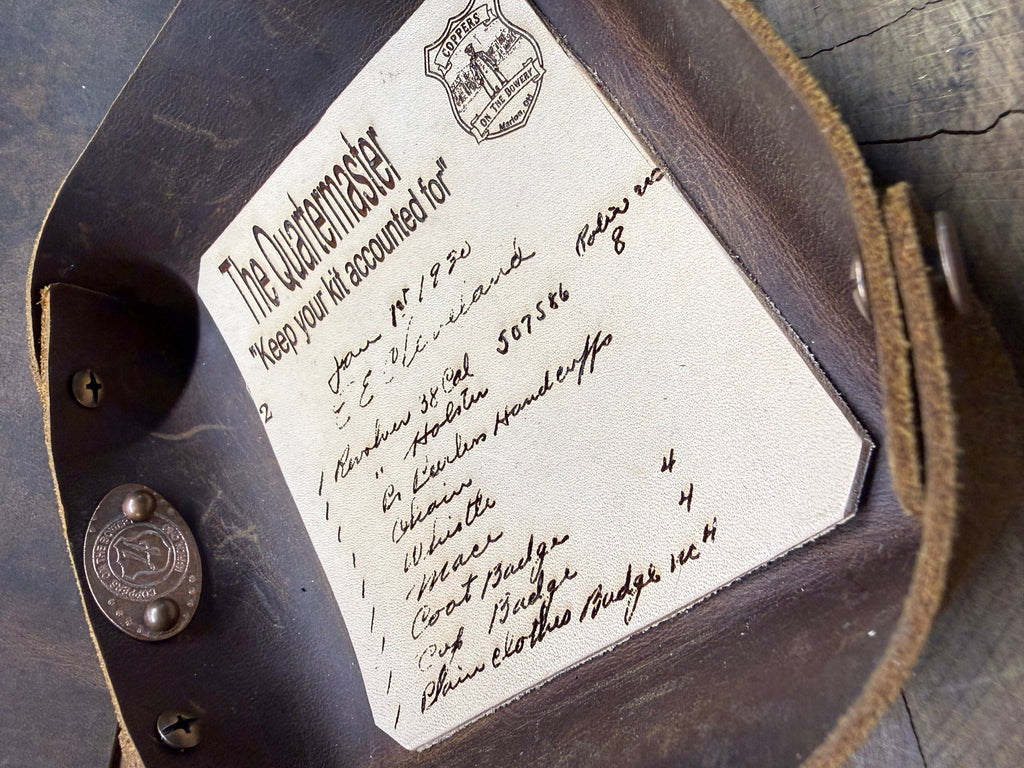 COPPERS
ON THE BOWERY
Marion, OH
The Quartermaster
"Keep your kit accounted for"
Jan 1st 1930
E E Cleveland
Police No
8
2
1 Revolver 38 Cal 507586
1 " Holster
1 Pr Peerless Handcuffs
1 Chain
1 Whistle
1 Mace
1 Coat Badge 4
1 Cap Badge 4
1 Plain clothes Badge No 4
COPPERS ON THE BOWERY